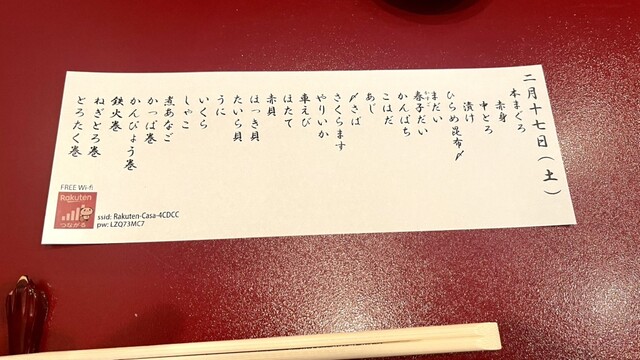 二月十七日（土）
本まぐろ
赤身
中とろ
漬け
ひらめ昆布〆
まだい
春子だい
かすご
かんぱち
こはだ
あじ
〆さば
さくらます
やりいか
車えび
ほたて
赤貝
ほっき貝
たいら貝
うに
いくら
しゃこ
煮あなご
かっぱ巻
かんぴょう巻
鉄火巻
ねぎとろ巻
とろたく巻
FREE Wi-fi
Rakuten
つながる
ssid: Rakuten-Casa-4CDCC
pw: LZQ73MC7